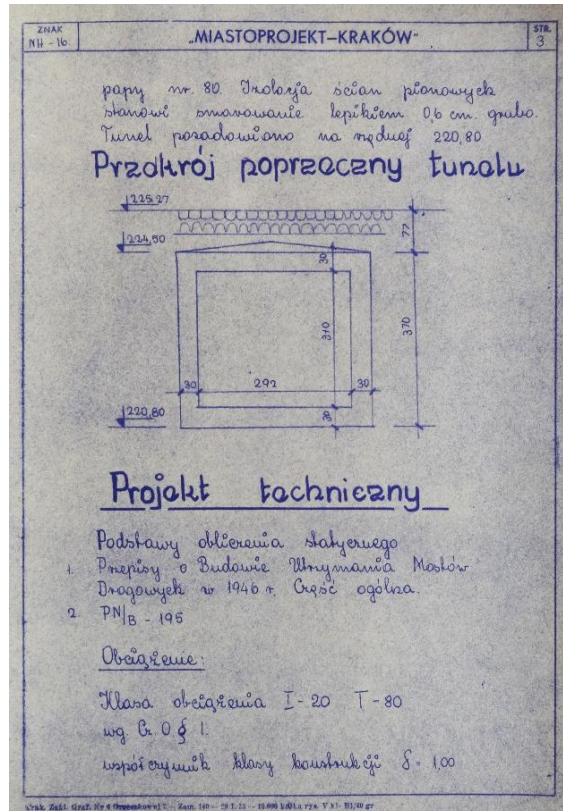 ZNAK
NH - 16.
„MIASTOPROJEKT–KRAKÓW”
STR.
3
papy nr. 80. Izolacja ścian pionowych
stanowi smarowanie lepikiem 0,6 cm. grubo.
Tunel posadowiono na rzędnej 220,80
Przekrój poprzeczny tunelu
225,27
224,50
77
30
310
370
30
292
30
220,80
30
Projekt techniczny
Podstawy obliczenia statycznego
1. Przepisy o Budowie Utrzymania Mostów
Drogowych z 1946 r. Część ogólna.
2 PN/B - 195
Obciążenie:
Klasa obciążenia I - 20 T - 80
wg Cz. O § 1.
współczynnik klasy konstrukcji δ = 1,00
Krak. Zakł. Graf. Nr 4